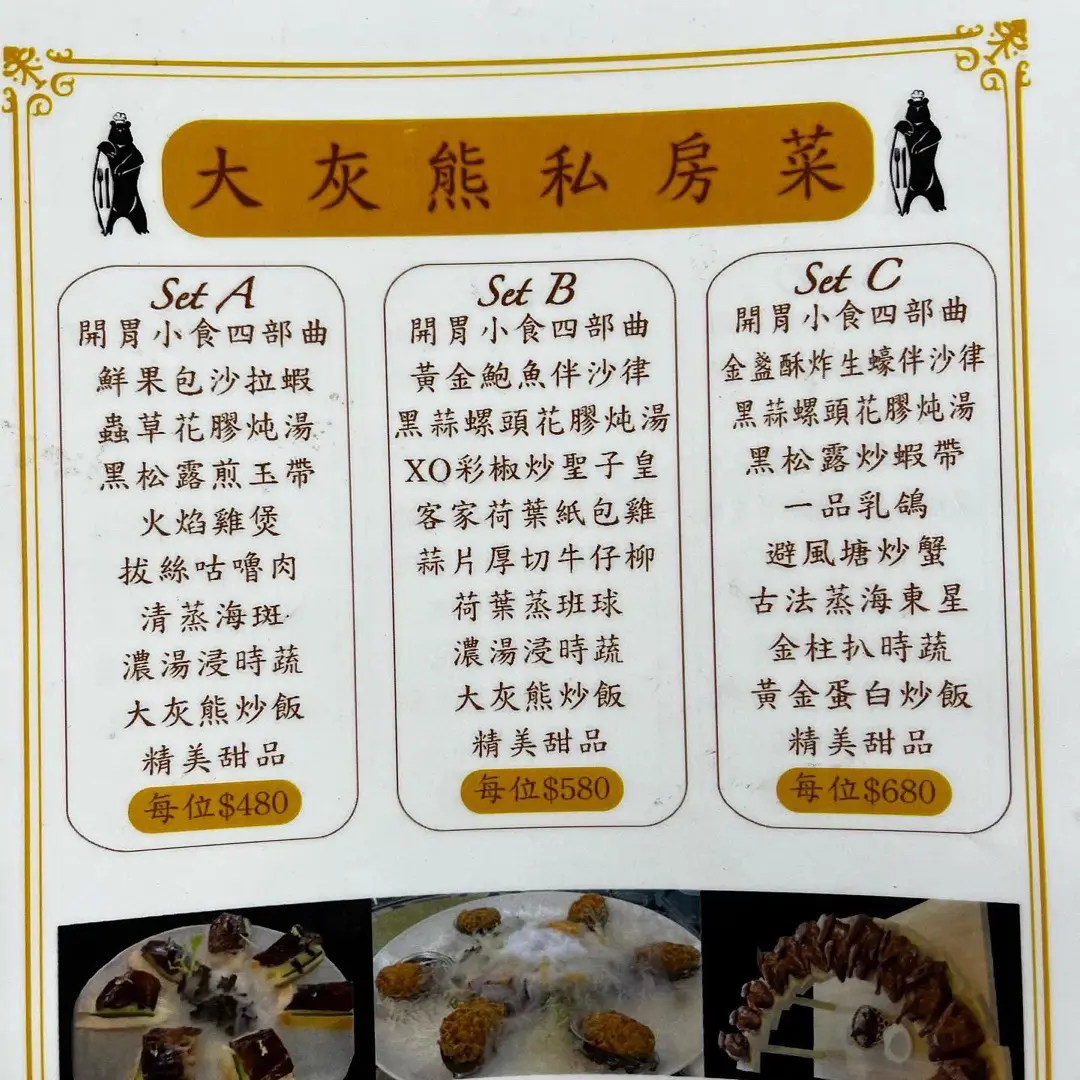 大灰熊私房菜
Set A
開胃小食四部曲
鮮果包沙拉蝦
蟲草花膠炖湯
黑松露煎玉帶
火焰雞煲
拔絲咕嚕肉
清蒸海斑
濃湯浸時蔬
大灰熊炒飯
精美甜品
每位$480
Set B
開胃小食四部曲
黃金鮑魚伴沙律
黑蒜螺頭花膠炖湯
XO彩椒炒聖子皇
客家荷葉紙包雞
蒜片厚切牛仔柳
荷葉蒸班球
濃湯浸時蔬
大灰熊炒飯
精美甜品
每位$580
Set C
開胃小食四部曲
金盞酥炸生蠔伴沙律
黑蒜螺頭花膠炖湯
黑松露炒蝦帶
一品乳鴿
避風塘炒蟹
古法蒸海東星
金柱扒時蔬
黃金蛋白炒飯
精美甜品
每位$680